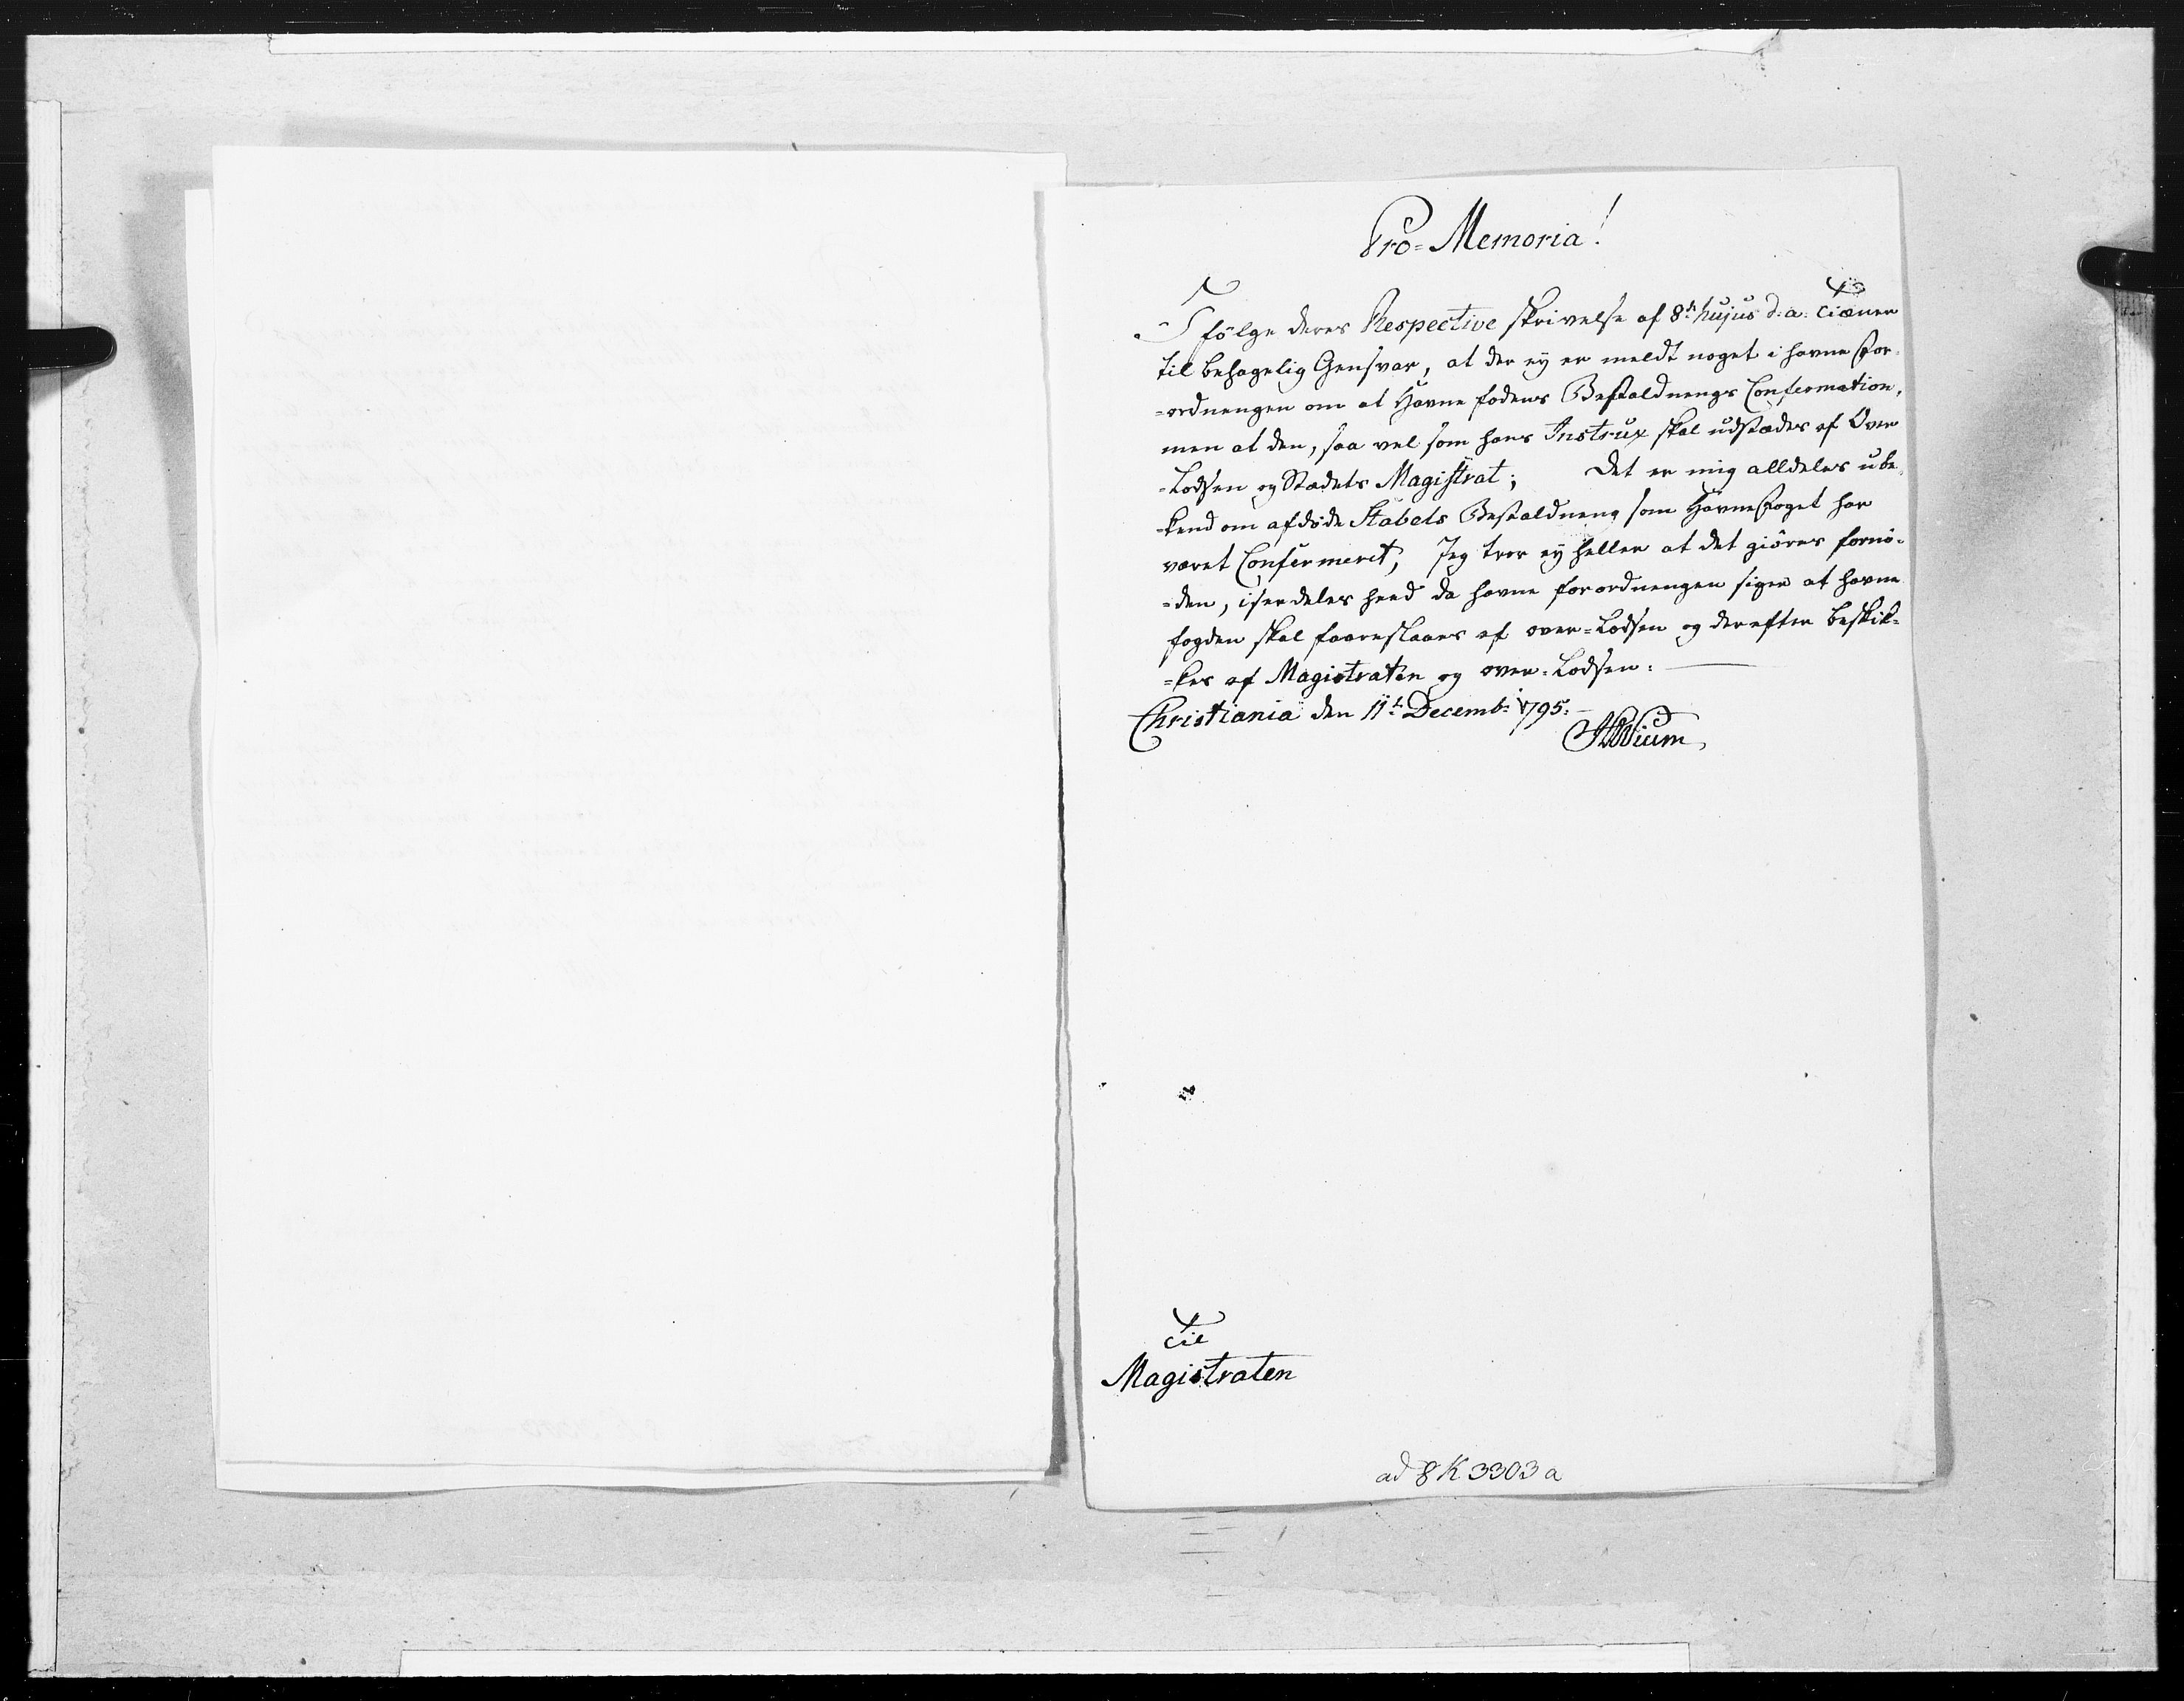 Pro-Memoria!
I følge deres Respective skrivelse af 8de hujus d: a: tiæner
til behagelig Gensvar, at der ey er meldt noget i havne For-
=ordnengen om at Havne fodens Bestaldnengs Confermation,
men at den, saa vel som hans Instrux skal udstædes af Over
=Lodsen og Stædets Magistrat; Det er mig alldeles ube-
=kend om afdöde Stabels Bestaldneng som HavneFoget har
været Confermeret, Jeg tror ey heller at det giöres fornö-
=den, iserdeles heed da havne forordnengen siger at havne
fogden skal foareslaaes af over=Lodsen og derefter beskik-
=kes af Magistraten og over-Lodsen.
Christiania den 11te Decemb: 1795.
Wium
Til
Magistraten
ad 8 K 3303 a